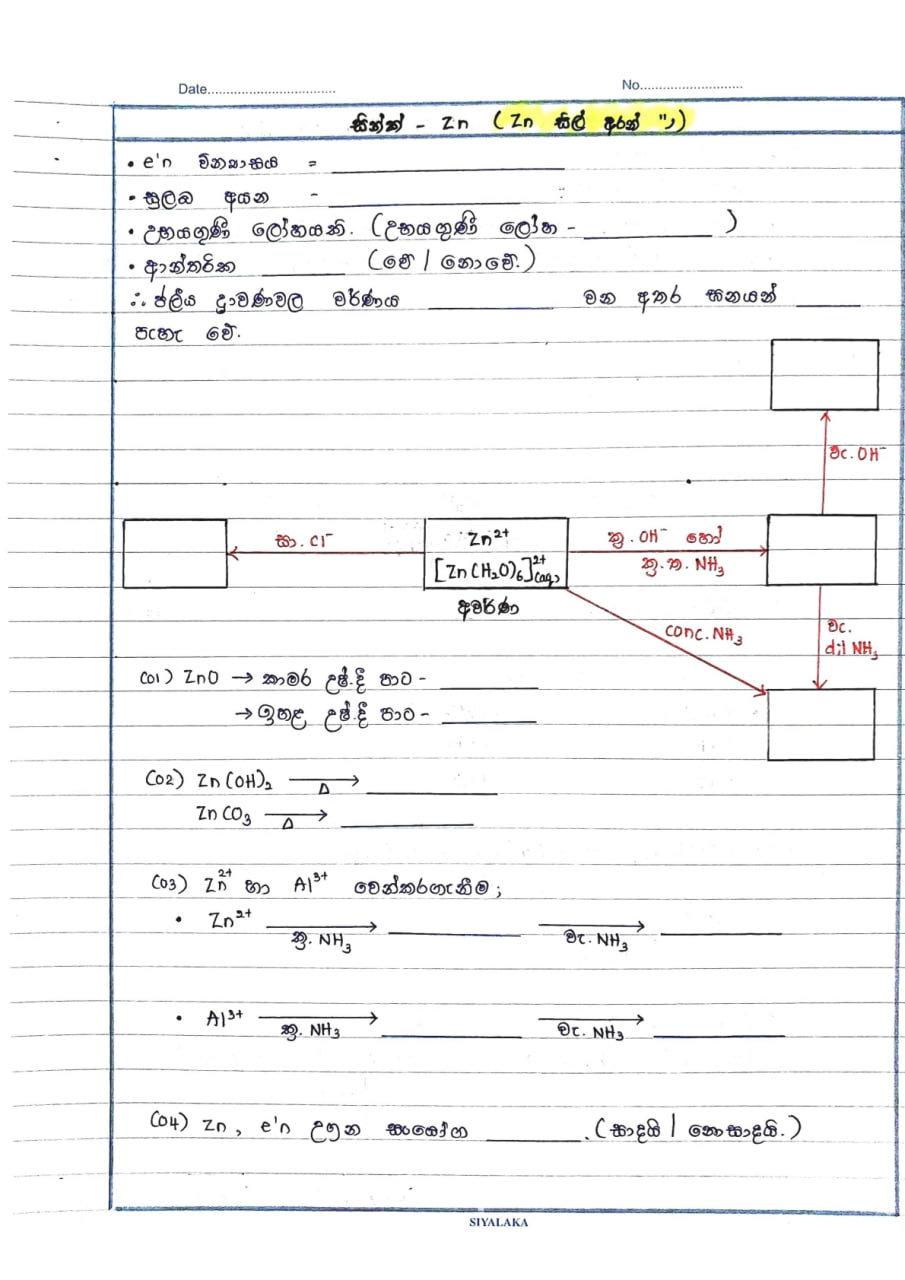 Date................................
No..........................
සින්ක් - Zn (Zn සිල් අරන් ",)
• e'n වින්‍යාසය = ____________
• සුලබ අයන - ____________
• උභයගුණී ලෝහයකි. (උභයගුණී ලෝහ - ________ )
• ආන්තරික ________ (වේ / නොවේ.)
∴ ජලීය ද්‍රාවණවල වර්ණය ________ වන අතර ඝනයන් ____
පැහැ වේ.
වැ. OH⁻
සා. Cl⁻
Zn²⁺
[Zn(H₂O)₆]²⁺(aq)
අවර්ණ
කු. OH⁻ හෝ
කු. ත. NH₃
conc. NH₃
වැ.
dil NH₃
(01) ZnO → කාමර උෂ්.දී පාට - ________
→ ඉහළ උෂ්.දී පාට - ________
(02) Zn(OH)₂ —Δ→ ________
ZnCO₃ —Δ→ ________
(03) Zn²⁺ හා Al³⁺ වෙන්කරගැනීම ;
• Zn²⁺ —කු. NH₃→ ________ —වැ. NH₃→ ________
• Al³⁺ —කු. NH₃→ ________ —වැ. NH₃→ ________
(04) Zn, e'n උග්‍රන සංයෝග ________. (සාදයි / නොසාදයි.)
SIYALAKA